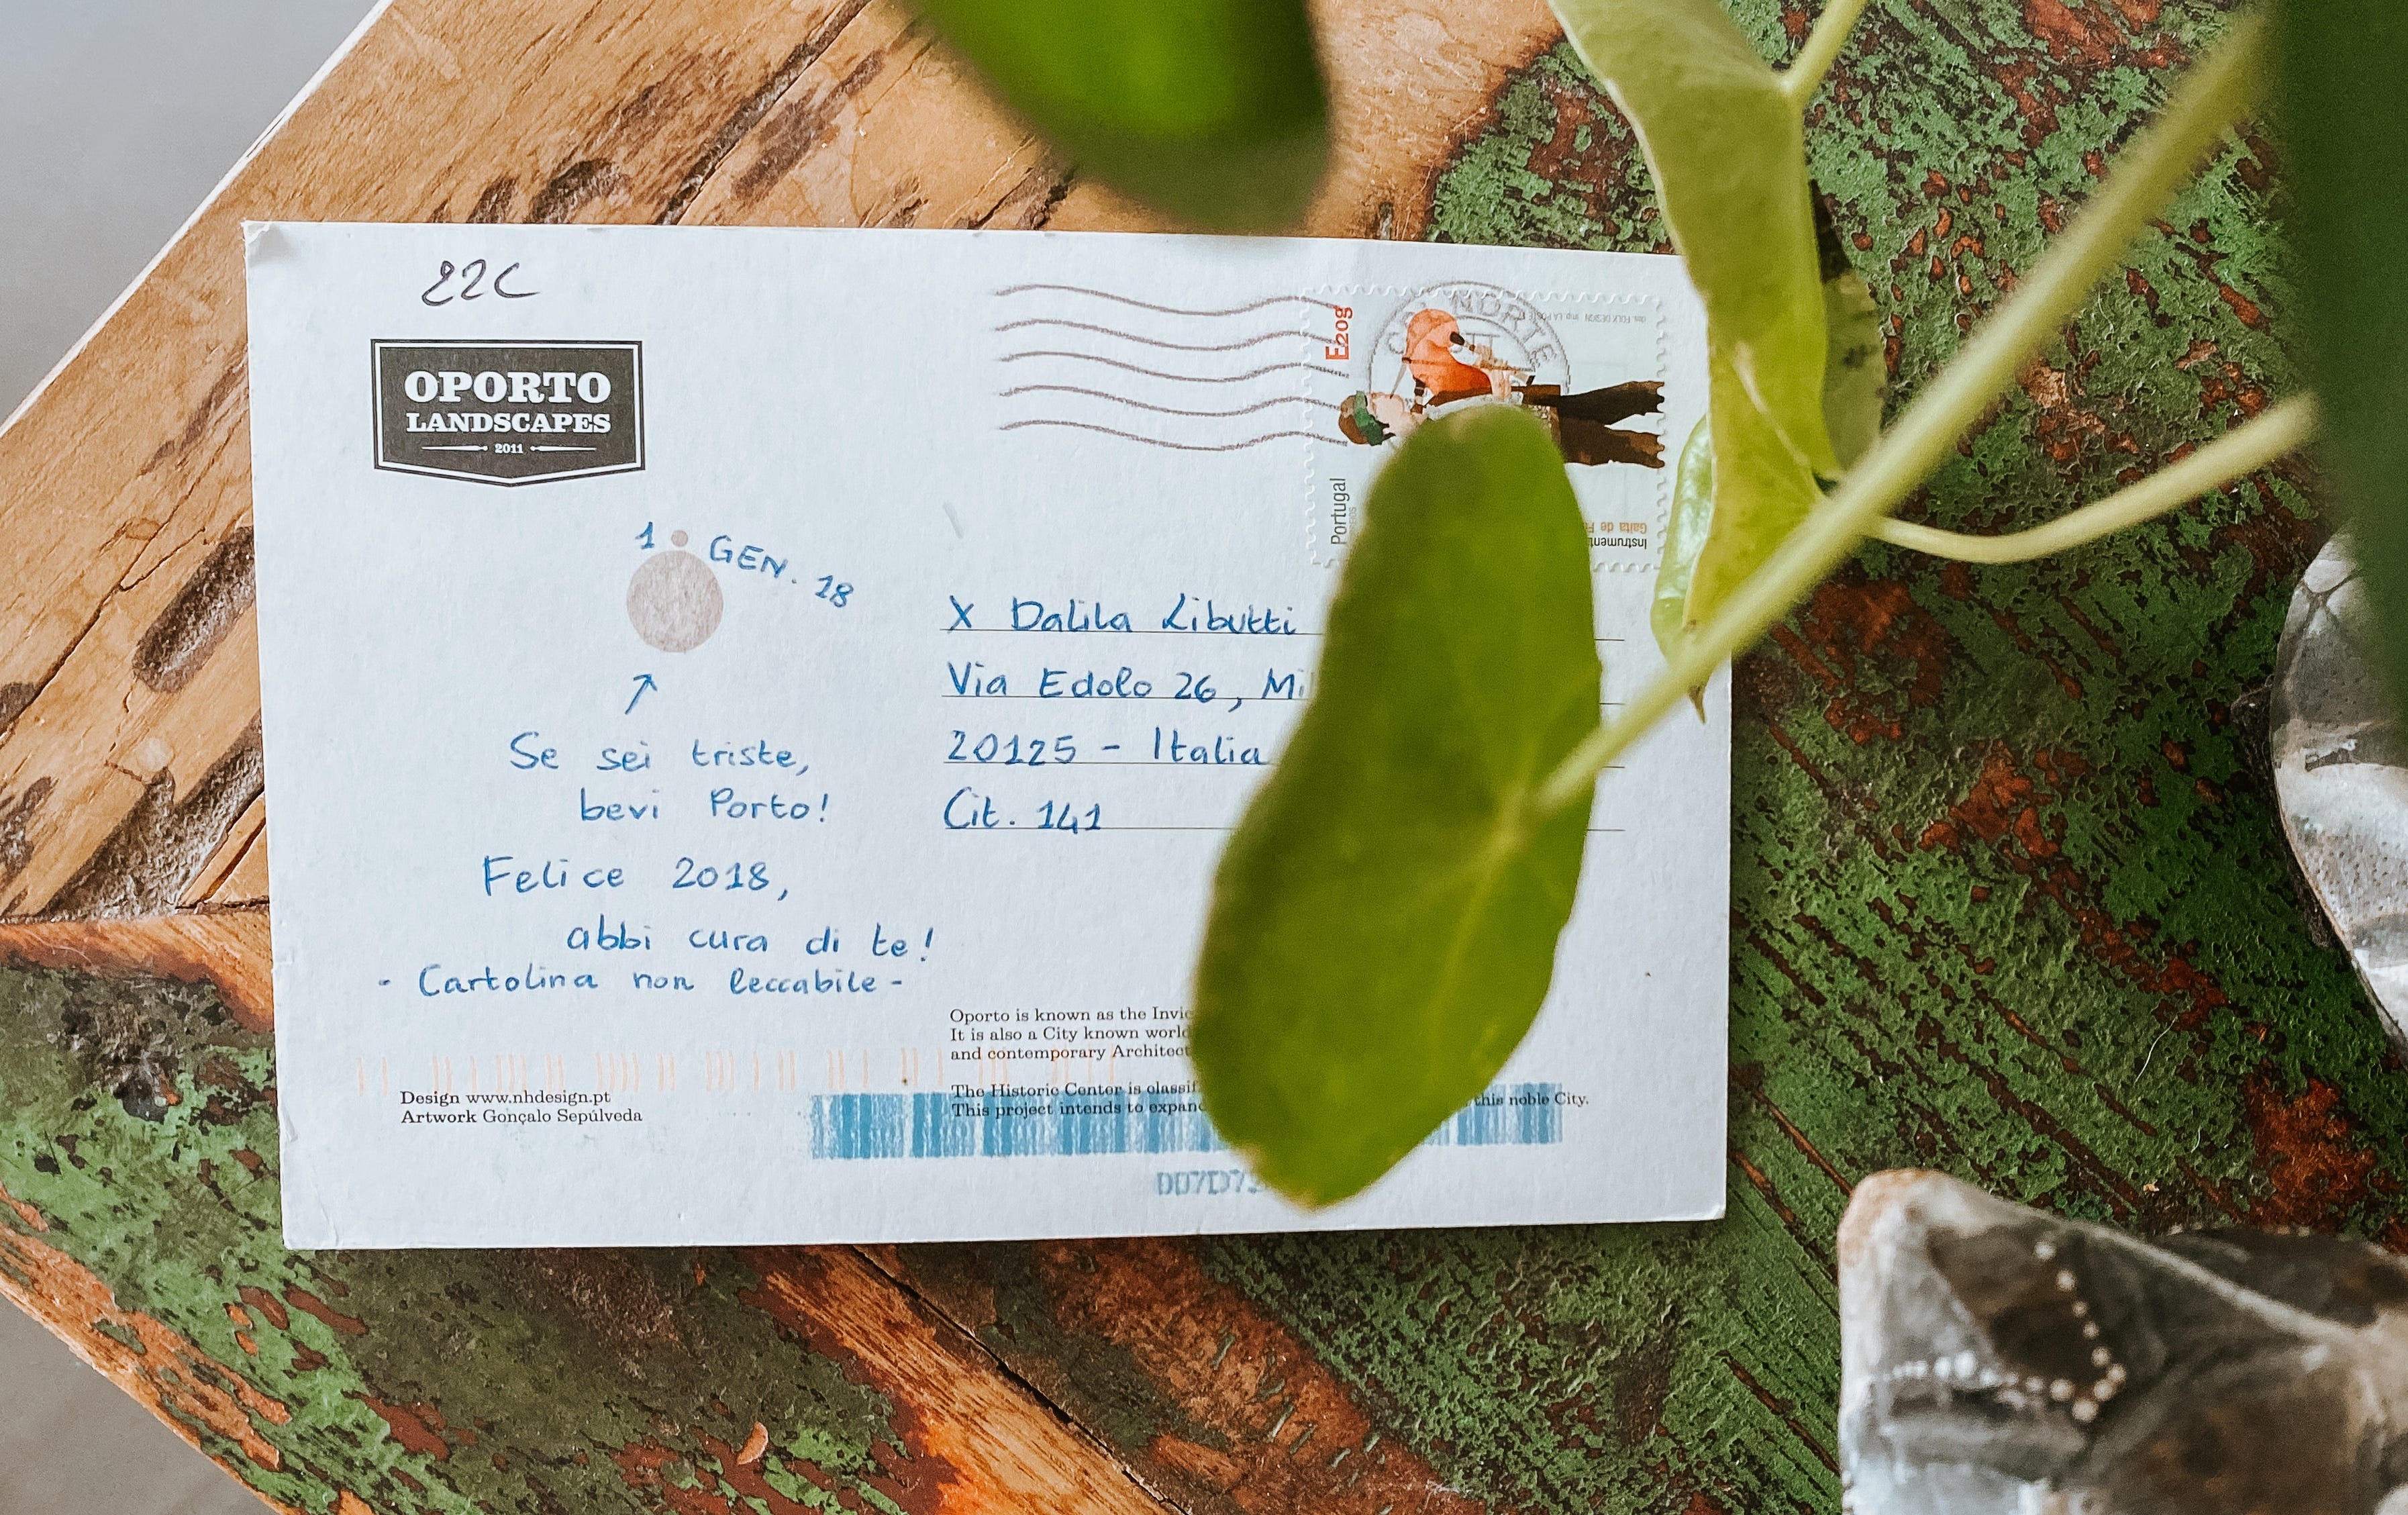 22C
OPORTO
LANDSCAPES
2011
E20g
Portugal
1 GEN. 18
Se sei triste,
bevi Porto!
Felice 2018,
abbi cura di te!
- Cartolina non leccabile -
X Dalila Libutti
Via Edolo 26,
20125 - Italia
Cit. 141
Oporto is known as the
It is also a City known
and contemporary
The Historic Center is
This project intends to this noble City.
Design www.nhdesign.pt
Artwork Gonçalo Sepúlveda